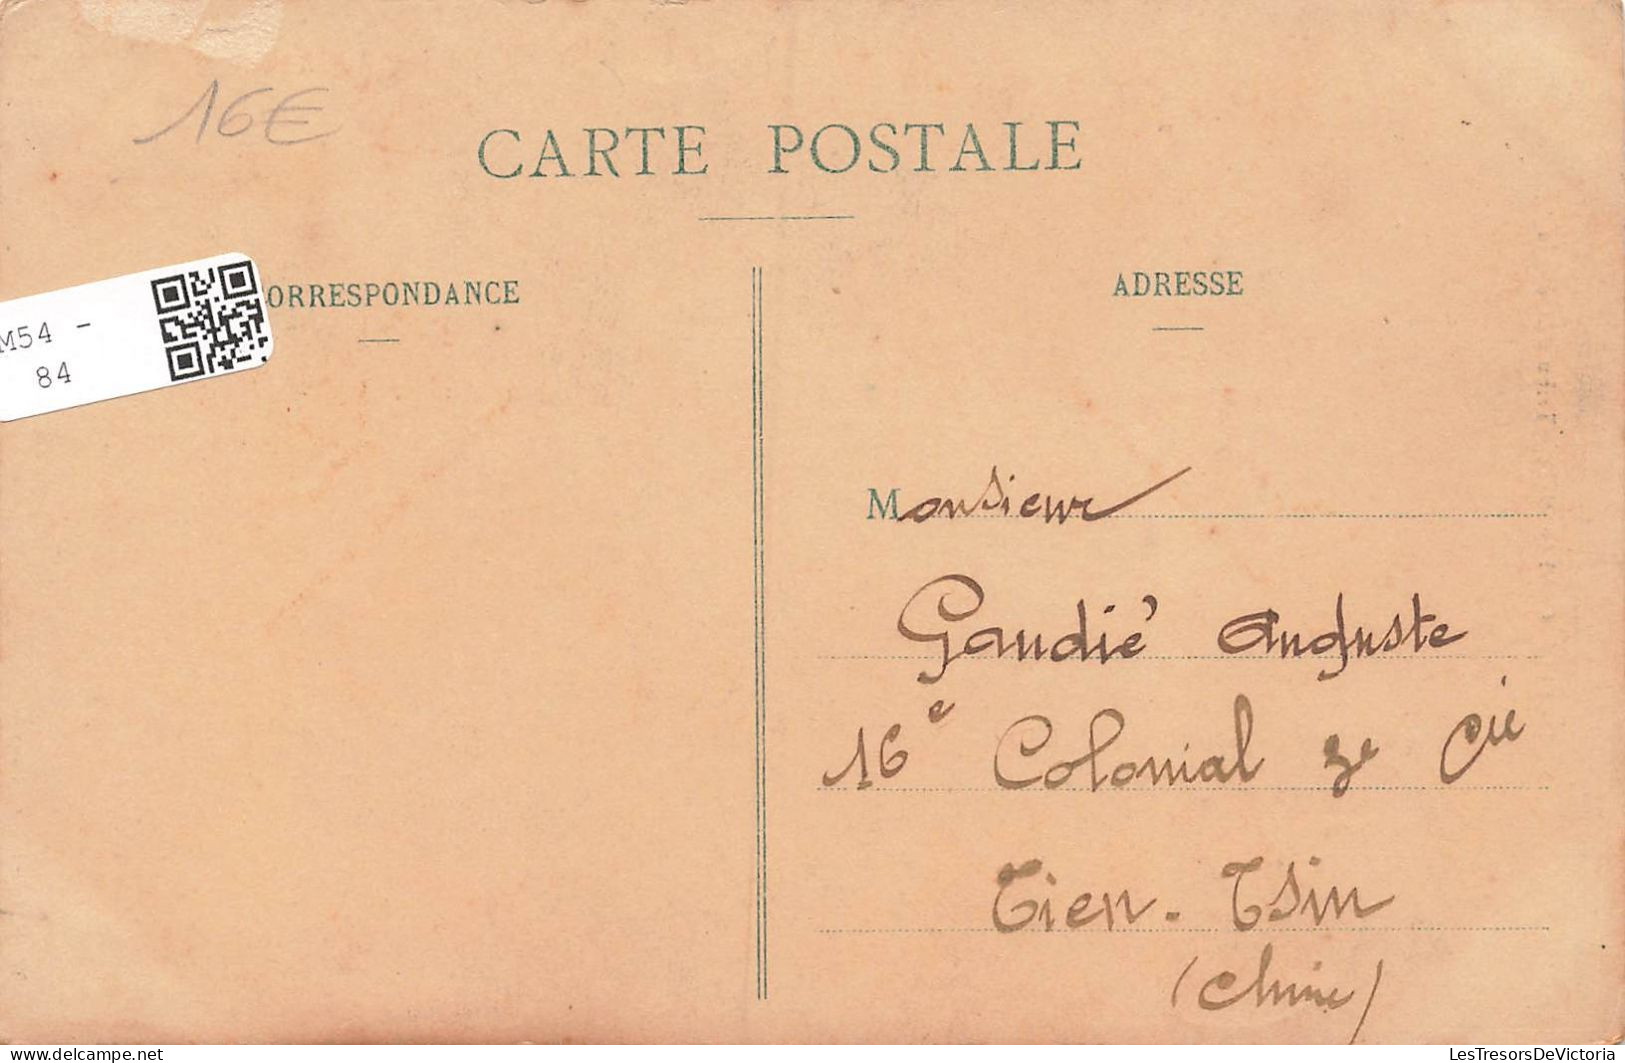 16€
CARTE POSTALE
ORRESPONDANCE
ADRESSE
M54 -
84
Monsieur
Gaudié Auguste
16e Colonial 3e Cie
Tien-Tsin
(Chine)
delcampe.net
LesTresorsDeVictoria